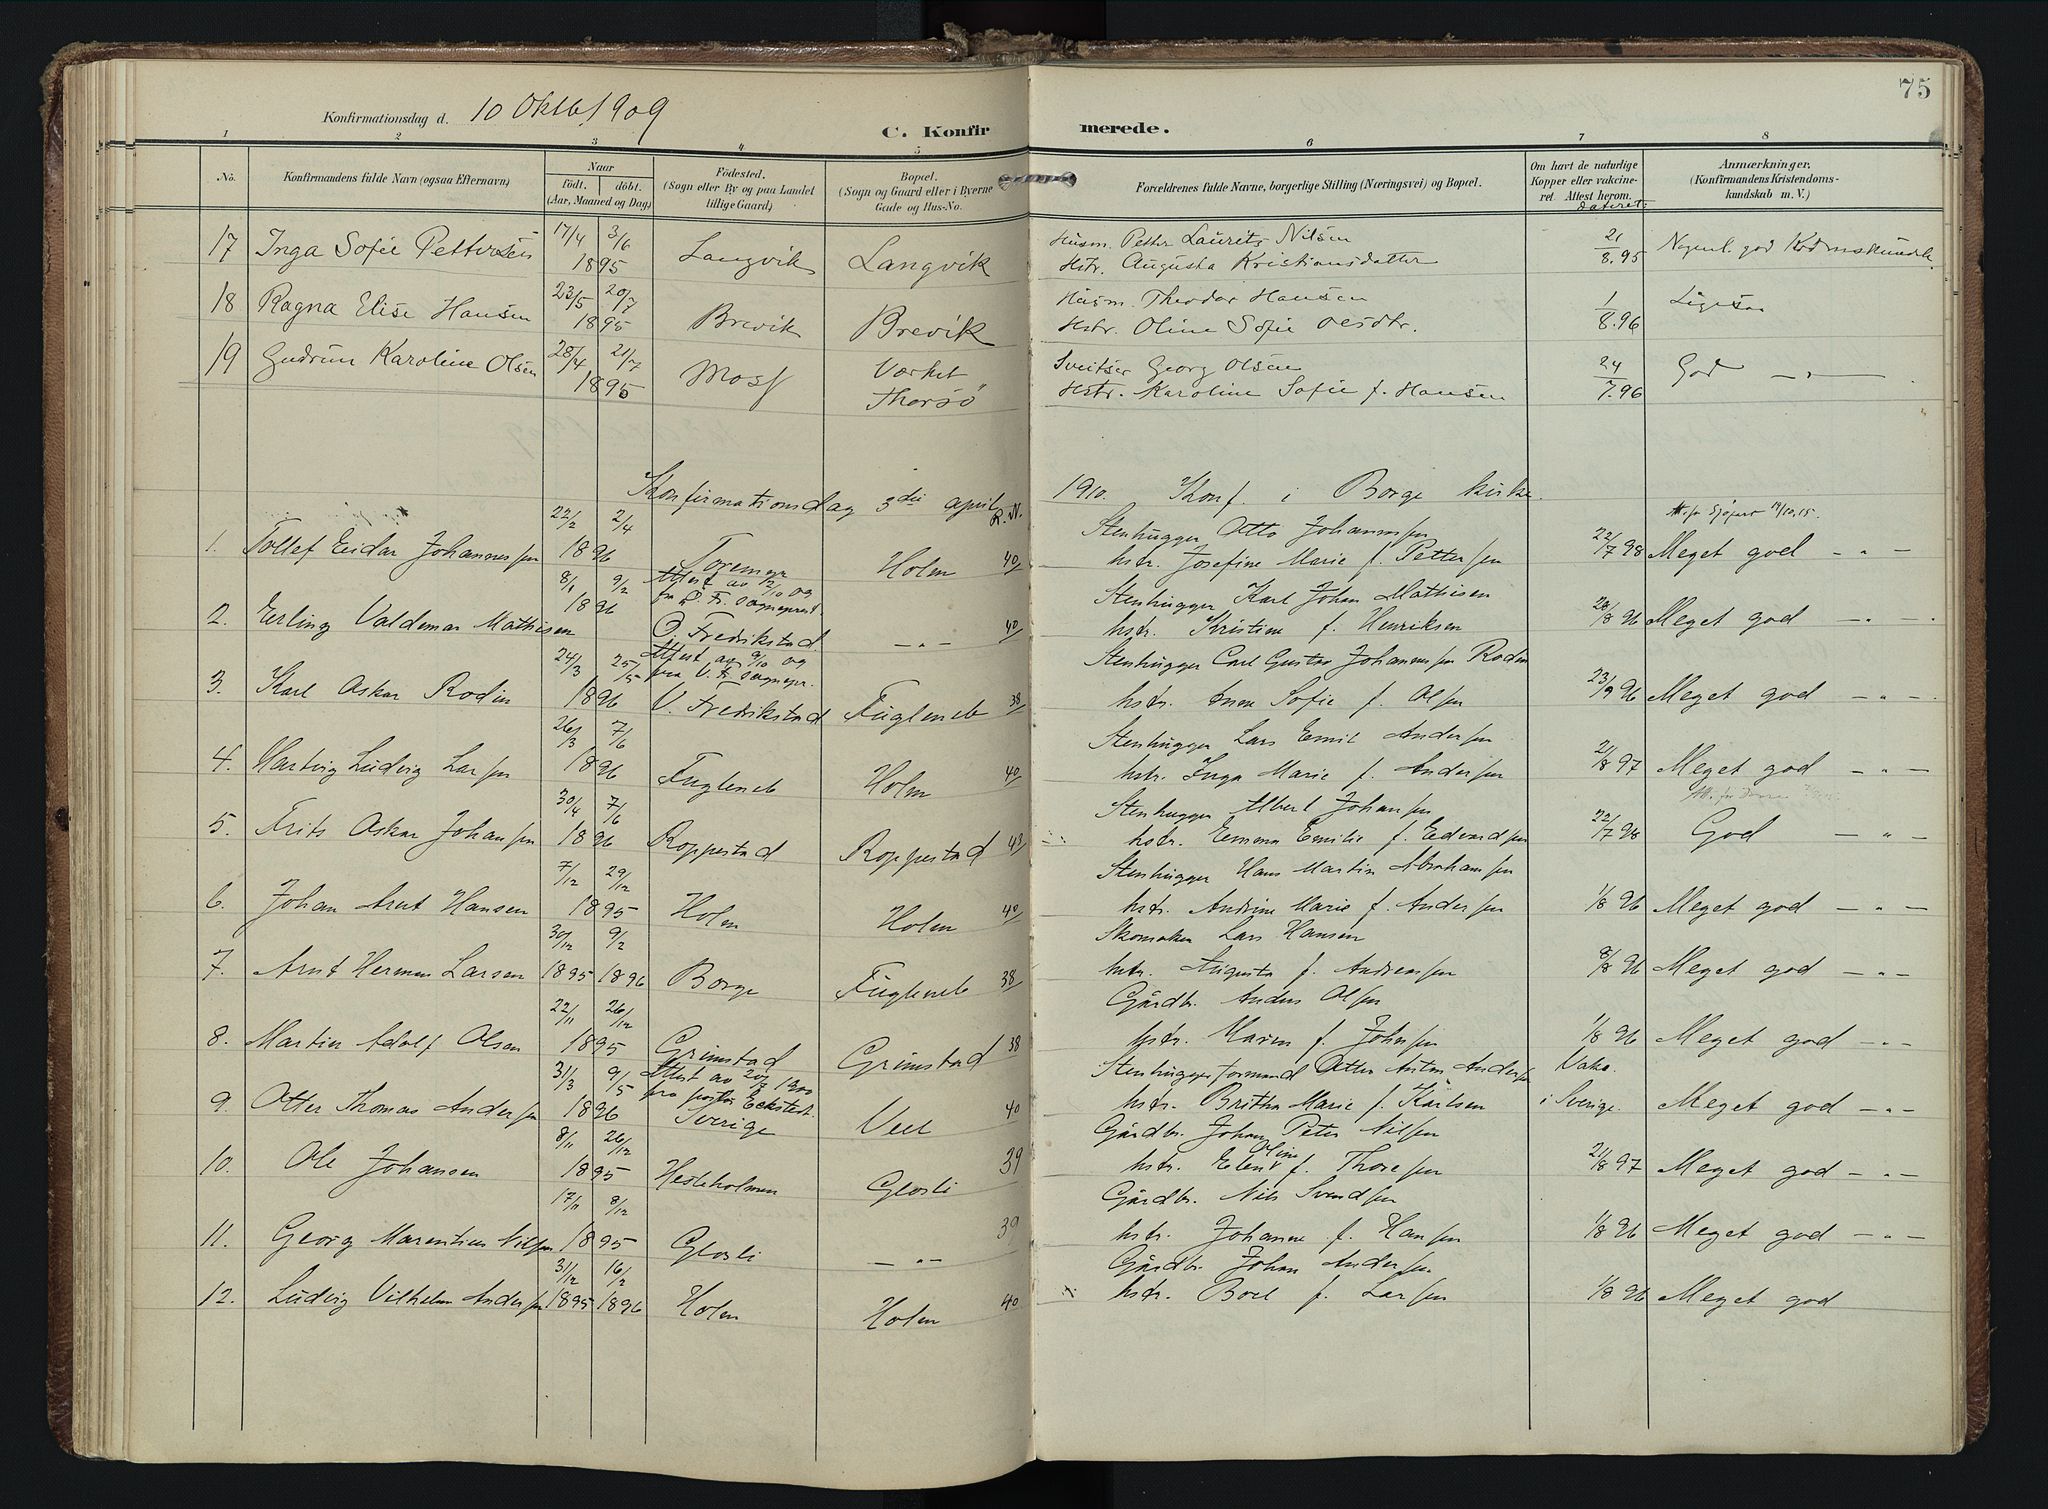 75
Konfirmationsdag d. 10 Oktbr 1909
C. Konfirmerede.
1 2 3 4 5 6 7 8
No.
Konfirmandens fulde Navn (ogsaa Efternavn)
Naar
født. døbt.
(Aar, Maaned og Dag)
Fødested.
(Sogn eller By og paa Landet
tillige Gaard)
Bopæl.
(Sogn og Gaard eller i Byerne
Gade og Hus-No.
Forældrenes fulde Navne, borgerlige Stilling (Næringsvei) og Bopæl.
Om havt de naturlige
Kopper eller vakcine-
ret. Attest herom.
dateret:
Anmærkninger.
(Konfirmandens Kristendoms-
kundskab m. V.)
17 Inga Sofie Pettersen 17/4 3/6 1895 Langvik Langvik Husm. Petter Laurits Nilsen 21/8.95 god
Hstr. Augusta Kristiansdatter
18 Ragna Elise Hansen 23/5 20/7 1895 Brevik Brevik Husm. Theodor Hansen 1/8.96 Ligesaa
Hstr. Oline Sofie Olsdtr.
19 Gudrun Karoline Olsen 28/4 21/7 1895 Moss Værket Thorsø Sveitser Georg Olsen 24/7.96 God — " —
Hstr. Karoline Sofie f. Hansen
Konfirmationsdag 3die april 1910. Konf. i Borge kirke.
R. N.
Att. for Sjøfart 19/10.15.
1. Tollef Eidar Johannessen 22/2 2/4 1896 Toremyr Holm 40 Stenhugger Otto Johannessen 22/7 98 Meget god — " —
hstr. Josefine Marie f. Pettersen
2. Erling Valdemar Mathisen 8/1 9/2 1896 Attest av 12/10 09
fra Ø. Fr. sogneprest
Ø. Fredrikstad — " — 40 Stenhugger Karl Johan Mathisen 28/8 96 Meget god — " —
hstr. Kristine f. Henriksen
3. Karl Oskar Rodin 24/3 25/5 1896 Attest av 9/10 09
fra V. Fr. sognepr.
V. Fredrikstad Fugleneb 38 Stenhugger Carl Gustav Johannessen Rodin 23/9 96 Meget god — " —
hstr. Anna Sofie f. Olsen
4. Hartvig Ludvig Larsen 26/3 7/6 1896 Fugleneb Holm 40 Stenhugger Lars Emil Andersen 21/8 97 Meget god — " —
hstr. Inga Marie f. Andersen
5. Frits Oskar Johansen 30/4 7/6 1896 Roppestad Roppestad 43 Stenhugger Albert Johansen 22/7 98 God — " —
hstr. Emma Emilie f. Edvardsen
6. Johan Arnt Hansen 7/12 29/12 1895 Holm Holm 40 Stenhugger Hans Martin Abrahamsen 1/8 96 Meget god — " —
hstr. Andrine Marie f. Andersen
7. Arnt Herman Larsen 30/12 9/2 1895 1896 Borge Fugleneb 38 Skomaker Lars Hansen 8/8 96 Meget god — " —
hstr. Augusta f. Andreassen
8. Martin Adolf Olsen 22/11 26/12 1895 Grimstad Grimstad 38 Gårdbr. Anders Olsen 1/8 96 Meget god — " —
hstr. Maren f. Johnsen
9. Otter Thomas Andersen 31/3 9/5 1896 Attest av 20/3 1900
fra pastor Eckstedt.
Sverige Veel 40 Stenhuggerformand Otter Anton Andersen Vakc. i Sverige. Meget god — " —
hstr. Britha Marie f. Karlsen
10. Ole Johansen 8/11 26/12 1895 Hesteholmen Glosli 39 Gårdbr. Johan Peter Nilsen 21/8 97 Meget god — " —
hstr. Elen Oline f. Thoresen
11. Georg Marentius Nilsen 17/11 8/12 1895 Glosli — " — 39 Gårdbr. Nils Svendsen 1/8 96 Meget god — " —
hstr. Johanne f. Hansen
12. Ludvig Vilhelm Andersen 31/12 16/2 1895 1896 Holm Holm 40 Gårdbr. Johan Andersen 1/8 96 Meget god
hstr. Boel f. Larsen